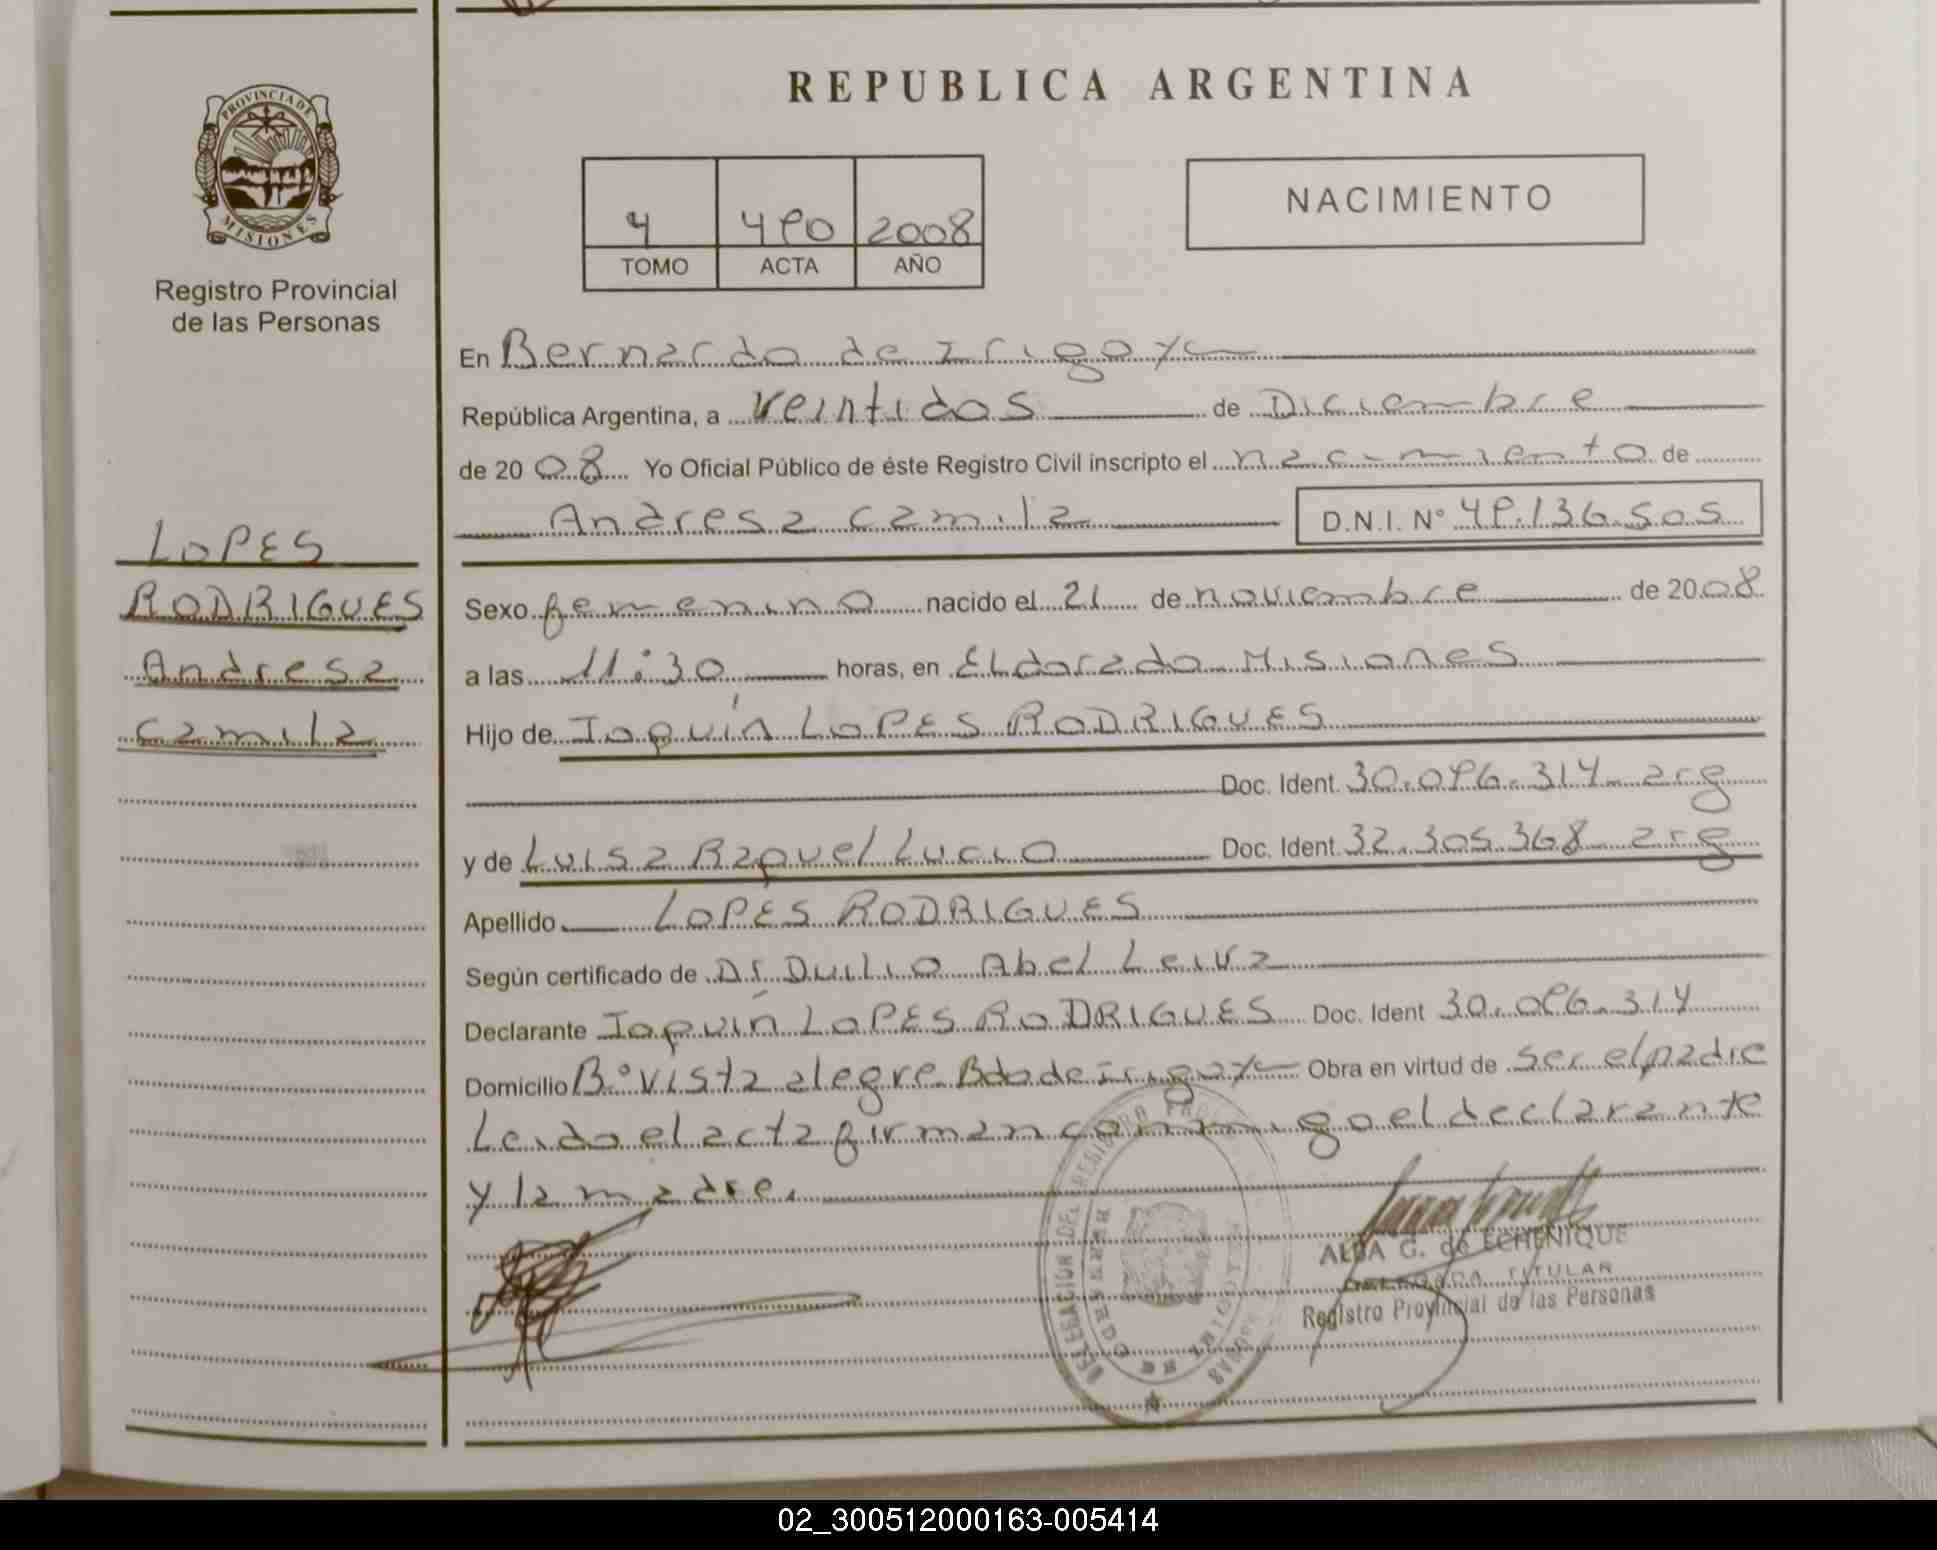 REPUBLICA ARGENTINA
PROVINCIA DE MISIONES
Registro Provincial
de las Personas
4 490 2008
TOMO ACTA AÑO
NACIMIENTO
LOPES
RODRIGUES
Andresa
Camila
En Bernardo de Irigoyen
República Argentina, a veintidos de Diciembre
de 2008 Yo Oficial Público de éste Registro Civil inscripto el nacimiento de
Andresa Camila D.N.I. N° 49.136.505
Sexo femenino nacido el 21 de noviembre de 2008
a las 11:30 horas, en Eldorado Misiones
Hijo de Joquín LOPES RODRIGUES
Doc. Ident. 30.096.314 arg
y de Luisa Raquel Lucio Doc. Ident. 32.305.368 arg
Apellido LOPES RODRIGUES
Según certificado de Dr Duilio Abel Leiva
Declarante Joquín LOPES RODRIGUES Doc. Ident 30.096.314
Domicilio B° vista alegre Bdo de Irigoyen Obra en virtud de ser el padre
Leido el acta firman conmigo el declarante
y la madre.
ALBA G. de ECHENIQUE
DELEGADA TITULAR
Registro Provincial de las Personas
02_300512000163-005414